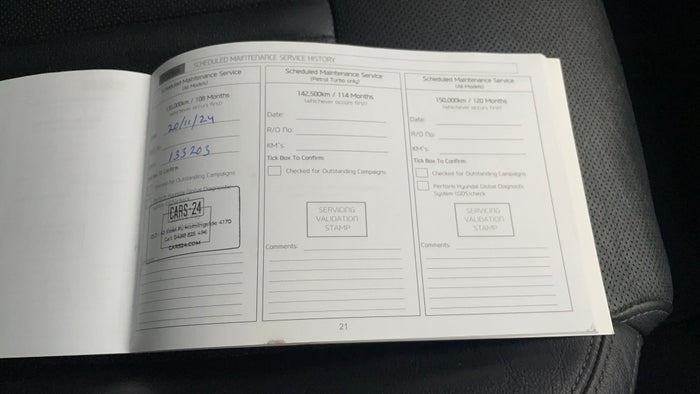 SCHEDULED MAINTENANCE SERVICE HISTORY
Scheduled Maintenance Service
(All Models)
/ 108 Months
(whichever occurs first)
20/11/24
133203
To Confirm
Checked for Outstanding Campaigns
Hyundai Global Diagnostic
CARS-24
4170
Call
CARS24.COM
Scheduled Maintenance Service
(Petrol Turbo only)
142,500km / 114 Months
(whichever occurs first)
Date:
R/O No:
KM's:
Tick Box To Confirm:
Checked for Outstanding Campaigns
SERVICING
VALIDATION
STAMP
Comments:
Scheduled Maintenance Service
(All Models)
150,000km / 120 Months
(whichever occurs first)
Date:
R/O No:
KM's:
Tick Box To Confirm:
Checked for Outstanding Campaigns
Perform Hyundai Global Diagnostic
System (GDS)check
SERVICING
VALIDATION
STAMP
Comments:
21